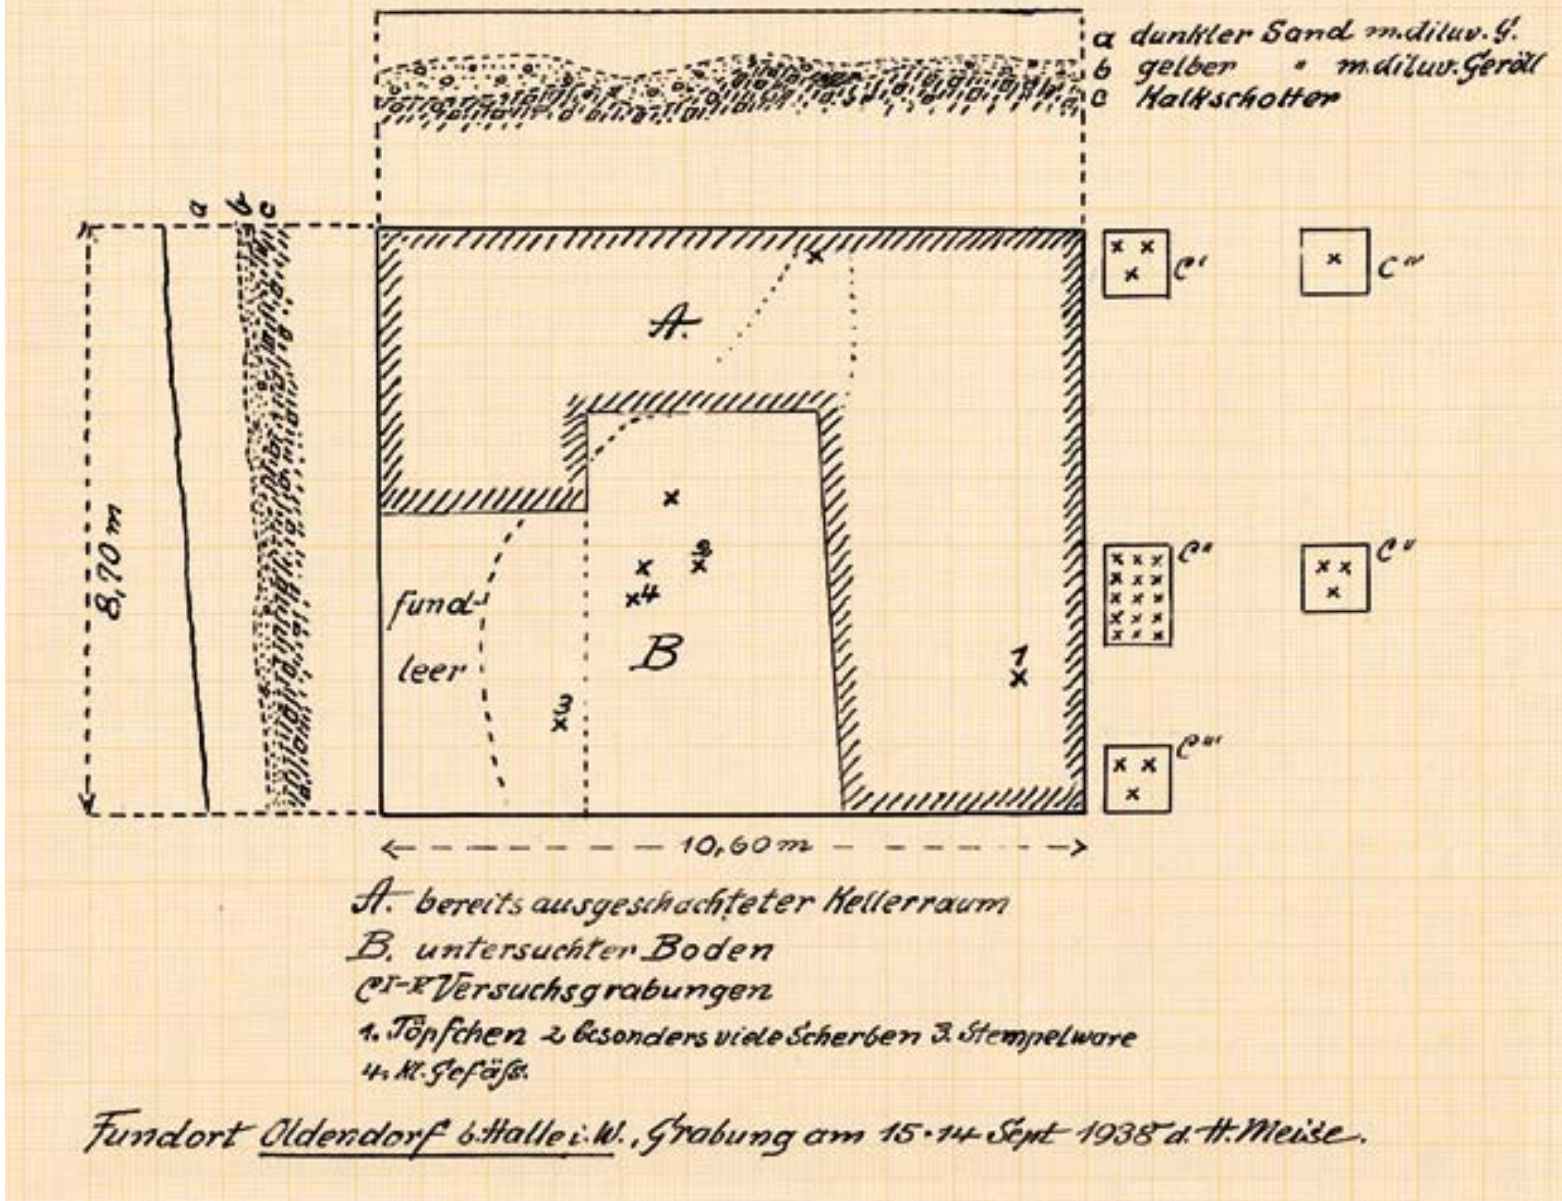 a dunkler Sand m.diluv. G.
b gelber " m.diluv. Geröll
c Kalkschotter
a b c
C' C'''
A.
8,70 m
2
C'' C''
4
fund-
leer
B
1
3
C'''
10,60 m
A. bereits ausgeschachteter Kellerraum
B. untersuchter Boden
C I-V Versuchsgrabungen
1. Töpfchen 2 besonders viele Scherben 3. Stempelware
4. kl. Gefäß.
Fundort Oldendorf b. Halle i. W., Grabung am 15.14 Sept 1938 d. H. Meise.